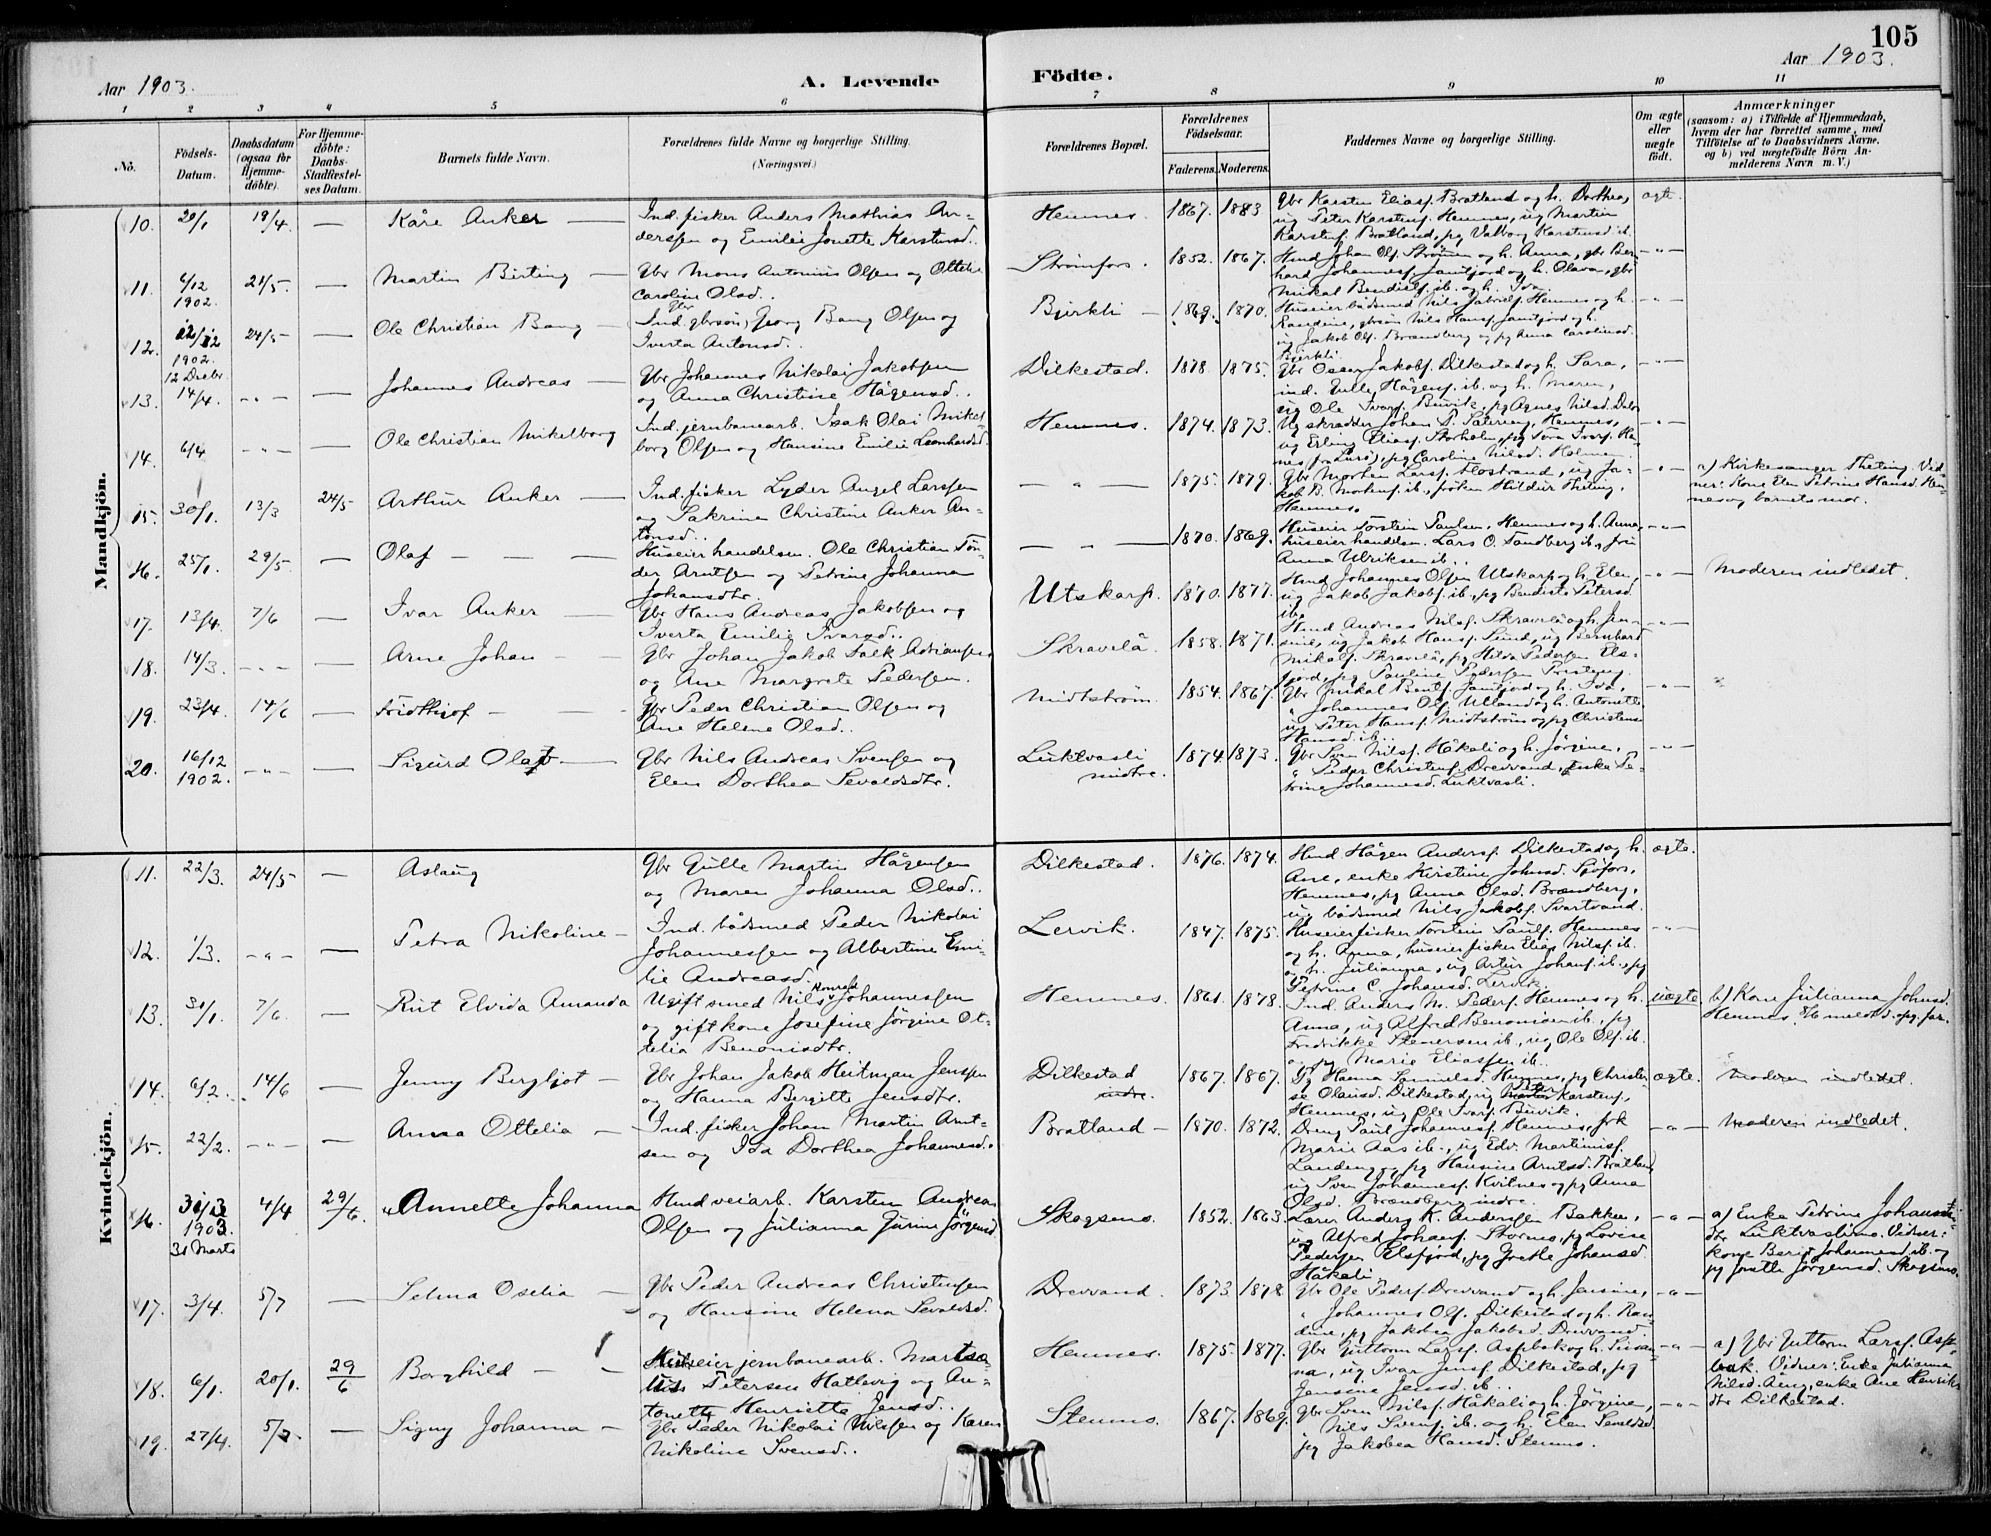 105
Aar 1903.
A. Levende
Födte.
Aar 1903.
1 2 3 4 5 6 7 8 9 10 11
No.
Födsels-Datum.
Daabsdatum (ogsaa for Hjemmedöbte).
For Hjemmedöbte: Daabs-Stadfæstelses Datum.
Barnets fulde Navn.
Forældrenes fulde Navne og borgerlige Stilling. (Næringsvei.)
Forældrenes Bopæl.
Forældrenes Födselsaar.
Faderens. Moderens.
Faddernes Navne og borgerlige Stilling.
Om ægte eller uægte födt.
Anmærkninger (saasom: a) i Tilfælde af Hjemmedaab, hvem der har forrettet samme, med Tilföielse af to Daabsvidners Navne, og b) ved uægtefödte Börn Anmelderens Navn m. V.)
Mandkjön.
10. 20/1 19/4. — Kåre Anker — Ind. fisker Anders Mathias An-
derssen og Emilie Jonette Karstensd.. Hemnes. 1867. 1883
Gbr Karsten Eliasf. Bratland og h. Dorthea, ægte.
ug Peter Karstenf. Hemnes, ug Martin
Karstenf. Bratland, pg Valborg Karstensd ib.
11. 6/12 1902. 21/5. — Martin Birting — Gbr Mons Antonius Olsen og Ottelie
Caroline Olsd.. Strömfors. 1852. 1867.
Kmd Johan Olf. Strömen og h. Anna, gbr Ber- — " —
hard Johannesf. Jamtjord og h. Olava, gbr
Mikal Bendikf. ib. og h. Iva.
12. 12/12 1902. 12 Decbr. 24/5 — Ole Christian Bang — Ind. gbrsön Georg Bang Olsen og
Gbr
Iverta Antonsd.. Bjerkli — 1869. 1870.
Huseier bådsmed Nils Gabrielf. Hemnes og h. — " —
Randine, gbrsön Nils Hansf. Jamtjord og h.
og Jakob Olf. Brændberg og pg Anna Carolinsd.
Bjerkli.
13. 14/4. — " — — Johannes Andreas — Gbr Johannes Nikolai Jakobsen
og Anna Christine Hågensd.. Dilkestad. 1878. 1875.
Gbr Oscar Jakobf. Dilkestad og h. Sara, — " —
ind. Gulle Hågenf. ib. og h. Maren,
ug Ole Ivarf. Buvik, pg Agnes Nilsd.
14. 6/4 — " — — Ole Christian Mikelborg Ind. jernbanearb. Isak Olai Mikel-
borg Olsen og Hansine Emilie Leonhardsd. Hemnes. 1874. 1873.
Ug skrædder Johan P. Hemnes, — " —
ug Erling Eliasf. Storholm, pg Tora Ivarf. Ha-
nes fra Lurö, pg Caroline Nilsd. Holmen.
15. 30/1. 13/3 24/5 Arthur Anker — Ind. fisker Lyder Angel Larssen
og Sakrine Christine Anker An-
tonsd.. — " — 1875. 1879.
Gbr Morten Larsf. Flostrand, ug Ja- — " — a) Kirkesanger Theting. Vid-
kob B. Mortenf. ib., fröken Hildur Theting, ner: Kone Elen Petrine Hansd. Hem-
Hemnes. nes og barnets mor.
16. 25/1. 29/5. — Olaf — — — Huseier handelsm. Ole Christian Tön-
der Arntsen og Petrine Johanna
Johansdtr. — " — 1870. 1869.
Huseier Torstein Paulsen, Hemnes og h. Anna, — " —
huseier handelsm. Lars O. Sandberg ib., fru
Anna Ulriksen ib..
17. 13/4. 7/6 — Ivar Anker — Gbr Hans Andreas Jakobsen og
Iverta Emilie Ivarsd.. Utskarp. 1870. 1877.
Kmd Johannes Olsen Utskarp og h. Elen, — " — Moderen indledet.
ug Jakob Jakobf. ib., pg Bendicte Petersd.
ib.
18. 14/3. — " — Arne Johan — Gbr Johan Jakob Falk Adriansen
og Ane Margrete Pedersen. Skravelå 1858. 1871.
Kmd Andreas Nilsf. Skravelå og h. Jen- — " —
sine, ug Jakob Hansf. Sund, ug Bernhard
Mikalf. Skravelå, pg Hilda Pedersen Els-
fjord, pg Pauline Pedersen
19. 23/4. 14/6 — Fridthjof — Gbr Peder Christian Olsen og
Ane Helene Olsd.. Midtström 1854. 1867.
Gbr Mikal Bentf. Jamtjord og h. Iva, — " —
" Johannes Olf. Utland og h. Antonette
ug Peter Hansf. Midtström og pg Christense
Hansd. ib..
20. 16/12 1902. — " — — Sigurd Olaf — Gbr Nils Andreas Svensen og
Elen Dorthea Sevaldsdtr. Luktvasli midtre. 1874 1873.
Gbr Sven Nilsf. Håkali og h. Jörgine, — " —
" Peder Christenf. Drevvand, enke Pe-
trine Johannesd. Luktvasli.
Kvindekjön.
11. 22/3. 24/5 — Aslaug Gbr Gulle Martin Hågensen
og Maren Johanna Olsd.. Dilkestad. 1876. 1874.
Kmd Hågen Andersf. Dilkestad og h. ægte.
Ane, enke Kirstine Johnsd.
Hemnes, pg Anna Olsd. Brændberg,
ug bådsmed Nils Jakobf. Svartvand.
12. 1/3. — " — — Petra Nikoline — Ind. bådsmed Peder Nikolai
Johannessen og Albertine Emi-
lie Andreasd. Lervik. 1847. 1875.
Huseier fisker Torstein Paulf. Hemnes — " —
og h. Anna, huseier fisker Elias Nilsf. ib.
og h. Julianna, ug Artur Johanf. ib., pg
Petrine C. Johansd. Lervik.
13. 31/1. 7/6. — Rut Elvida Amanda Ugift smed Nils Konrad Johannessen
og gift kone Josefine Jörgine Ot-
telia Benonisdtr. Hemnes. 1861. 1878.
Ind. Anders M. Pederf. Hemnes og h. uægte. b) Kone Julianna Johnsd.
Anna, ug Alfred Benonisen ib., pg Hemnes
Fredrikke Stenersen ib., ug Ole Olf. ib.
og pg Marie Eliassen ib.
14. 6/2. 14/6 — Jenny Bergljot — Gbr Johan Jakob Heitman Jenssen
og Hanna Bergitte Jensdtr. Dilkestad indre. 1867. 1867.
Pg Hanna Samuelsd. Hemnes, pg Christen- ægte. Moderen indledet.
se Olausd. Dilkestad, ug Peter Karstenf.
Hemnes, ug Ole Ivarf. Buvik.
15. 22/2. — " — — Anna Ottelia — Ind. fisker Johan Martin Arnt-
sen og Ida Dorthea Johannesd.. Bratland — 1870. 1872.
Dreng Paul Johannesf. Hemnes, frk — " — Moderen indledet.
Marie Aas ib., ug Edv. Martinisf.
Landeng og pg Hansine Arntsd. Bratland
ug Sven Johannesf. Kvitnes og pg Anna
Olsd. Brændberg indre.
16. 31/3 1903. 31 Marts 4/4 29/6. Annette Johanna Kmd veiarb. Karsten Andreas
Olsen og Julianna Jörgensd. Skogsmo. 1852. 1863.
Lærer Anders K. Anderssen Bakken, — " — a) Enke Petrine Johannes-
ug Alfred Johanf. Stormo, pg Lovise dtr Luktvaslimo. Vidner:
Pedersen Elsfjord, pg Grethe Johansd. kone Berit Johannesd. ib. og
Håkali pg Jörgensd. Skogsmo.
17. 3/4. 5/7 — Selma Oselia — Gbr Peder Andreas Christensen
og Hansine Helena Sevaldsd. Drevvand. 1873 1878
Gbr Ole Pederf. Drevvand og h. Jensine, — " —
" Johannes Olf. Dilkestad og h. Ran-
dine, pg Jakobea Jakobsd. Drevvand.
18. 6/1. 20/1. 29/6 Borghild — — Huseier jernbanearb.
Petersen Hatlevig og An-
tonette Henriette Jensd.. Hemnes. 1875. 1877.
Gbr Guttorm Larsf. Aspbak og h. Susan- — " — a) Gbr Guttorm Larsf. Asp-
na, ug Ivar Jensf. Dilkestad, pg bak. Vidner: Enke Julianna
Jensine Jensd. ib.. Nilsd. enke Ane Henriks-
dtr Dilkestad.
19. 27/4. 5/7. — Signy Johanna — Gbr Peder Nikolai Nilsen og Karen
Nikoline Svensd.. Stenmo. 1867. 1869.
Gbr Sven Nilsf. Håkali og h. Jörgine, — " —
" Nils Svenf. ib. og h. Elen Sevaldsd.
pg Jakobea Hansd. Stenmo.